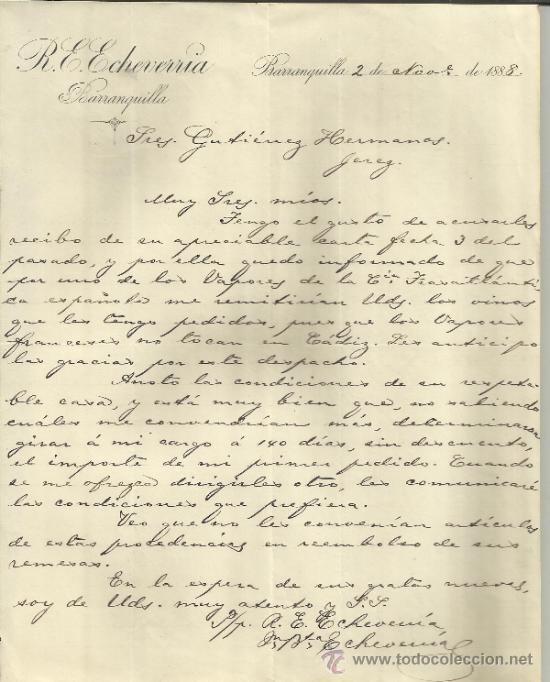 R. E. Echeverria
Barranquilla
Barranquilla 2 de Nove. de 1888.
Sres. Gutiérrez Hermanos.
Jerez.
Muy Sres. mios.
Tengo el gusto de acusarles
recibo de su apreciable carta fecha 3 del
pasado, y por ella quedo informado de que
por uno de los Vapores de la Cía. Trasatlánti-
ca española me remitirían Uds. los vinos
que les tengo pedidos, pues que los Vapores
franceses no tocan en Cádiz. Les anticipo
las gracias por este despacho.
Anoto las condiciones de su respeta-
ble casa, y está muy bien que, no sabiendo
cuáles me convendrían más, determinaron
girar á mi cargo á 140 días, sin descuento,
el importe de mi primer pedido. Cuando
se me ofrezca dirigirles otro, les comunicaré
las condiciones que prefiera.
Veo que no les convenían artículos
de estas procedencias en reembolso de sus
remesas.
En la espera de sus gratas nuevas,
soy de Uds. muy atento y S. S.
P/p. R. E. Echeverría
Echeverría
todocoleccion
www.todocoleccion.net